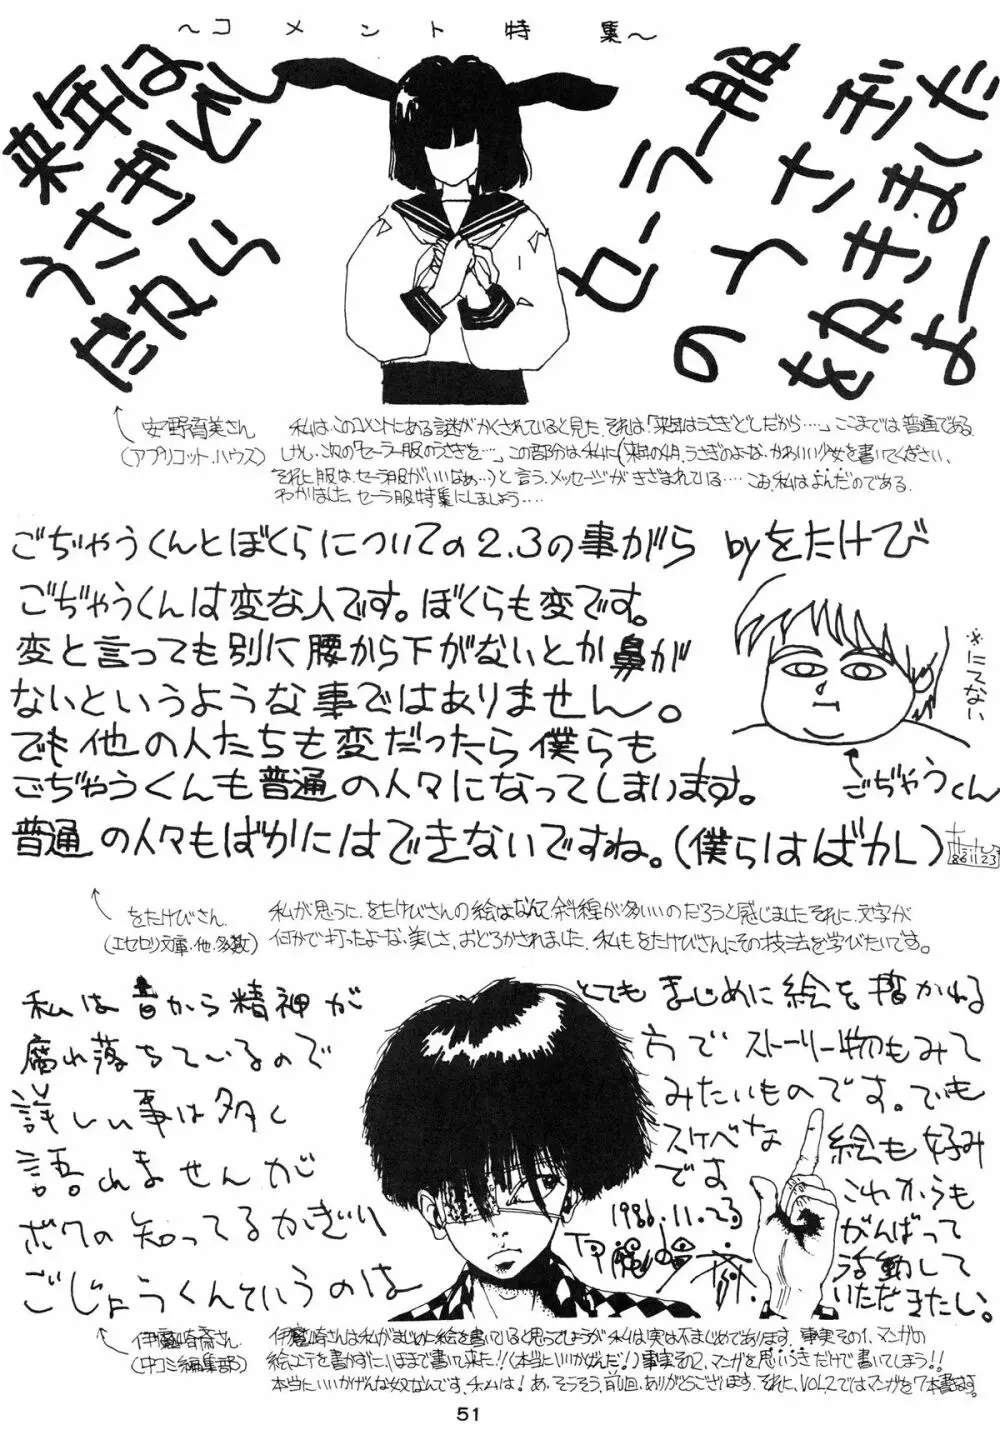 ～コメント特集～
来年は
うさぎどし
だから
セーラー服
のうさぎ
をねさ
だまし
よー
安野育美さん
(アプリコット・ハウス)
私は、このコメントにある謎がかくされていると見た。それは「来年はうさぎどしだから‥‥」ここまでは普通である。
しかし、次の「セーラー服のうさぎを…」この部分は、私に(来年の4月、うさぎのよーな、かわいい少女を書いてください、
それに服は、セーラ服がいいなぁ…)と言う、メッセージがきざまれている‥‥こお、私はよんだのである。
わかりました。セーラ服特集にしましょう‥‥
ごぢゃうくんとぼくらについての2.3の事がら byをたけび
ごぢゃうくんは変な人です。ぼくらも変です。
変と言っても別に腰から下がないとか鼻が
ないというような事ではありません。
でも他の人たちも変だったら僕らも
ごぢゃうくんも普通の人々になってしまいます。
普通の人々もばかにはできないですね。(僕らはばかし)
86 11 23
※にてない
ごぢゃうくん
をたけびさん
(エセセリ文庫・他・多数)
私が思うに、をたけびさんの絵はなんて斜線が多いいのだろうと感じました。それに、文字が
何かで打ったよーな・美しさ、おどろかされました、私もをたけびさんにその技法を学びたいです。
私は昔から精神が
腐れ落ちているので
詳しい事は多く
語れませんが
ボクの知ってるかぎり
ごじょうくんていうのは
とてもまじめに絵を描かれる
方でストーリー物もみて
みたいものです。でも
スケベな絵も好み
では
これからも
がんばって
活動して
いただきたい。
1986.11.23
伊魔崎斎
伊魔崎斎さん
(中コミ編集部)
伊魔崎さんは私がまじめに絵を書いていると思ってしょうが私は実は不まじめであります。事実その1、マンガの
絵コンテを書かずに、1ほまで書いて来た!!(本当にいいかげんだ!)事実その2、マンガを思いつきだけで書いてしまう!!
本当にいいかげんな奴なんです、私ムは! あ、そうそう、前回、ありがとうございます。それに、VOL.2ではマンガを7本書ます。
51